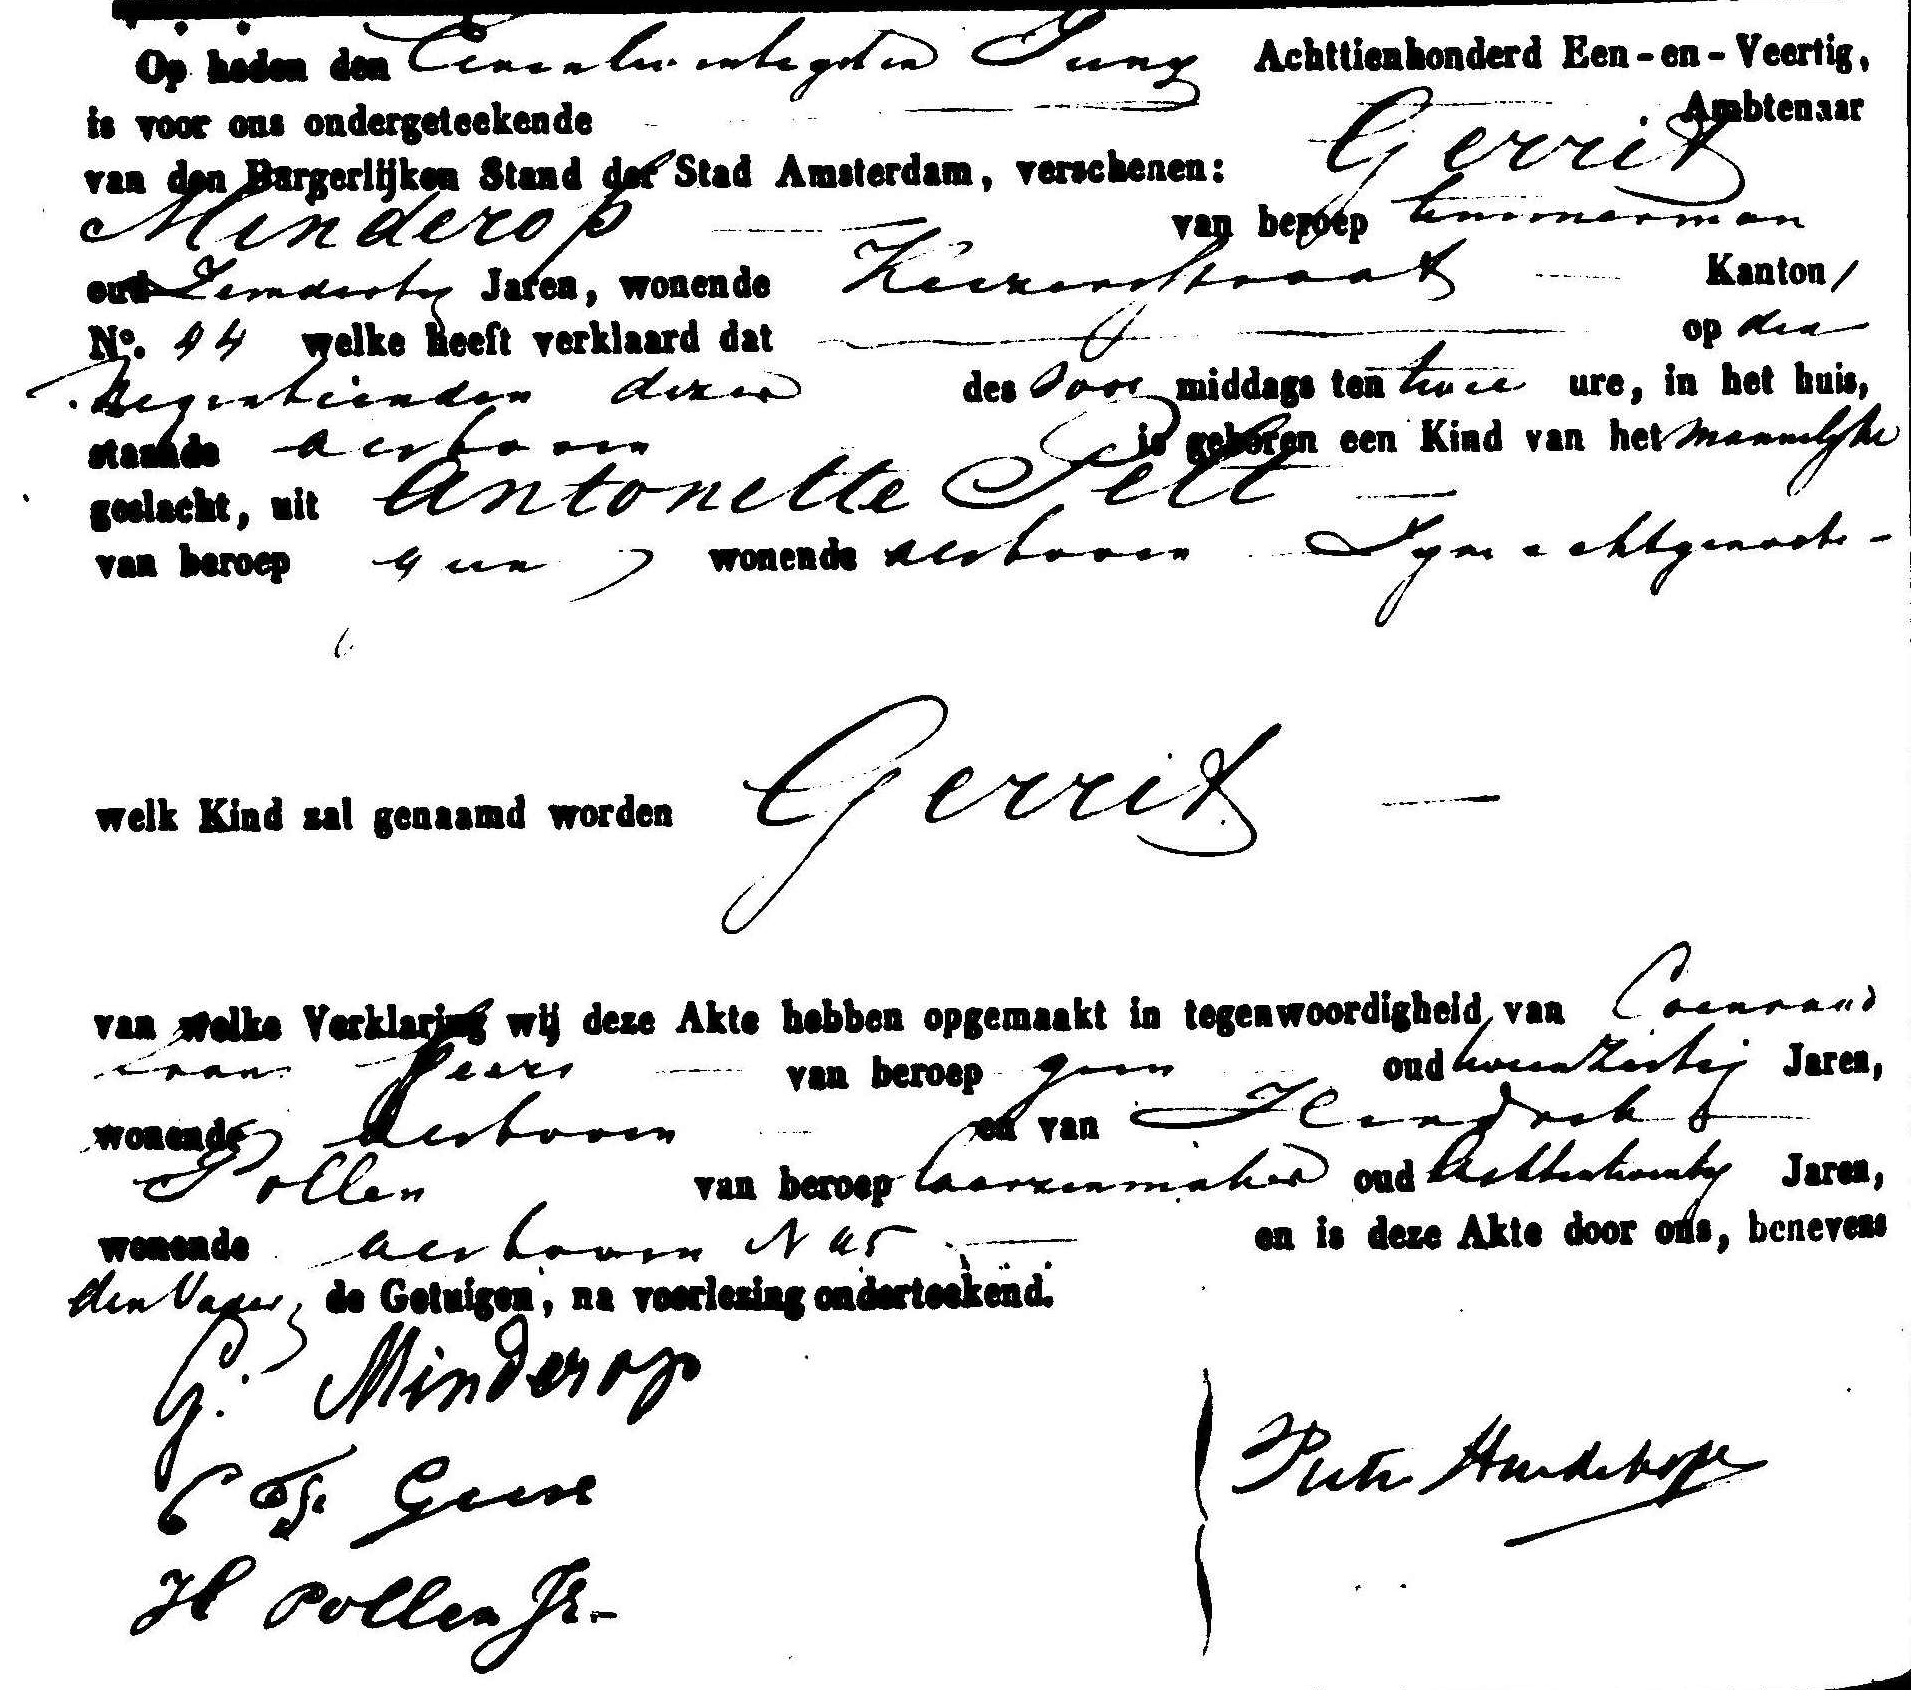 Op heden den Eenentwintigsten Juny Achttienhonderd Een-en-Veertig,
is voor ons ondergeteekende Ambtenaar
van den Burgerlijken Stand der Stad Amsterdam, verschenen: Gerrit
Minderop van beroep timmerman
oud Jaren, wonende Keizerstraat Kanton 1
No. 44 welke heeft verklaard dat op den
Negentienden dezer des voor middags ten twee ure, in het huis,
staande als boven is geboren een Kind van het mannelyke
geslacht, uit Antonette Pelt
van beroep geen wonende als boven Zyne echtgenoote
welk Kind zal genaamd worden Gerrit
van welke Verklaring wij deze Akte hebben opgemaakt in tegenwoordigheid van Coenraad
van beroep geen oud Jaren,
wonende als boven en van Hendrik
Pollen van beroep laarzenmaker oud Achtentwintig Jaren,
wonende als boven N 45 en is deze Akte door ons, benevens
den Vader, de Getuigen, na voorlezing onderteekend.
G. Minderop
H Pollen Jr.